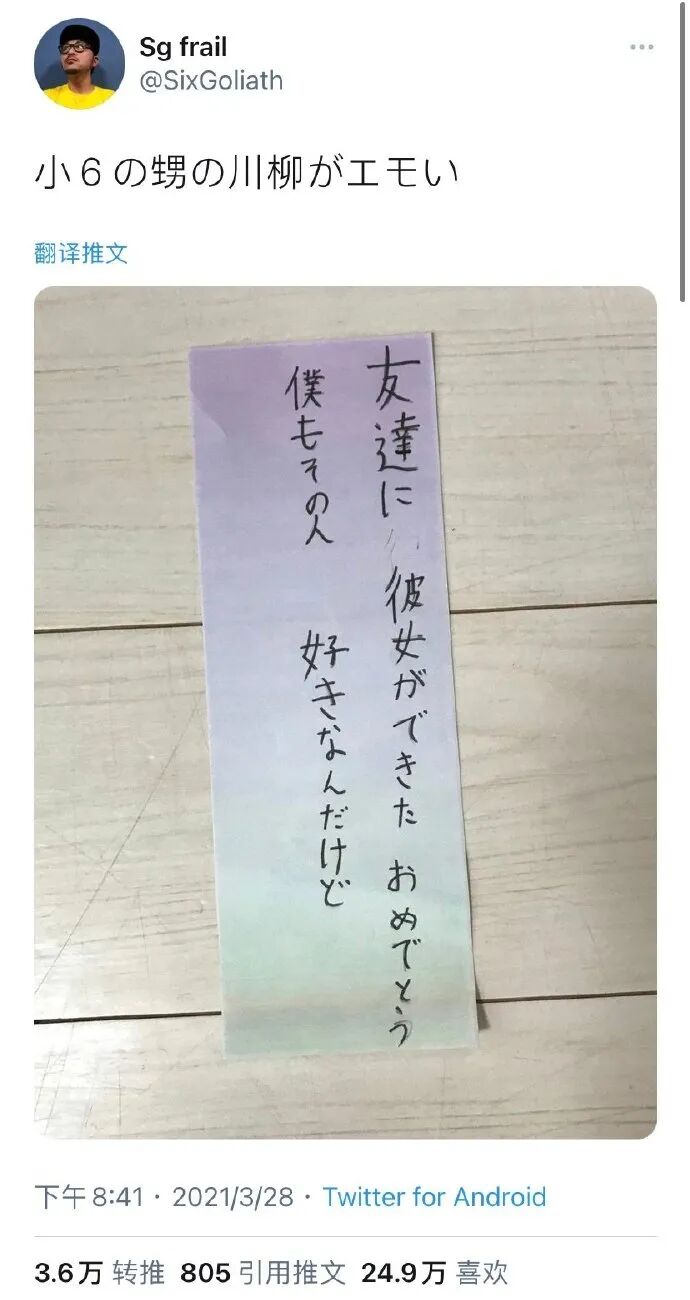 Sg frail
@SixGoliath
小６の甥の川柳がエモい
翻译推文
友達に 彼女ができた おめでとう
僕もその人 好きなんだけど
下午 8:41 · 2021/3/28 · Twitter for Android
3.6万 转推 805 引用推文 24.9万 喜欢